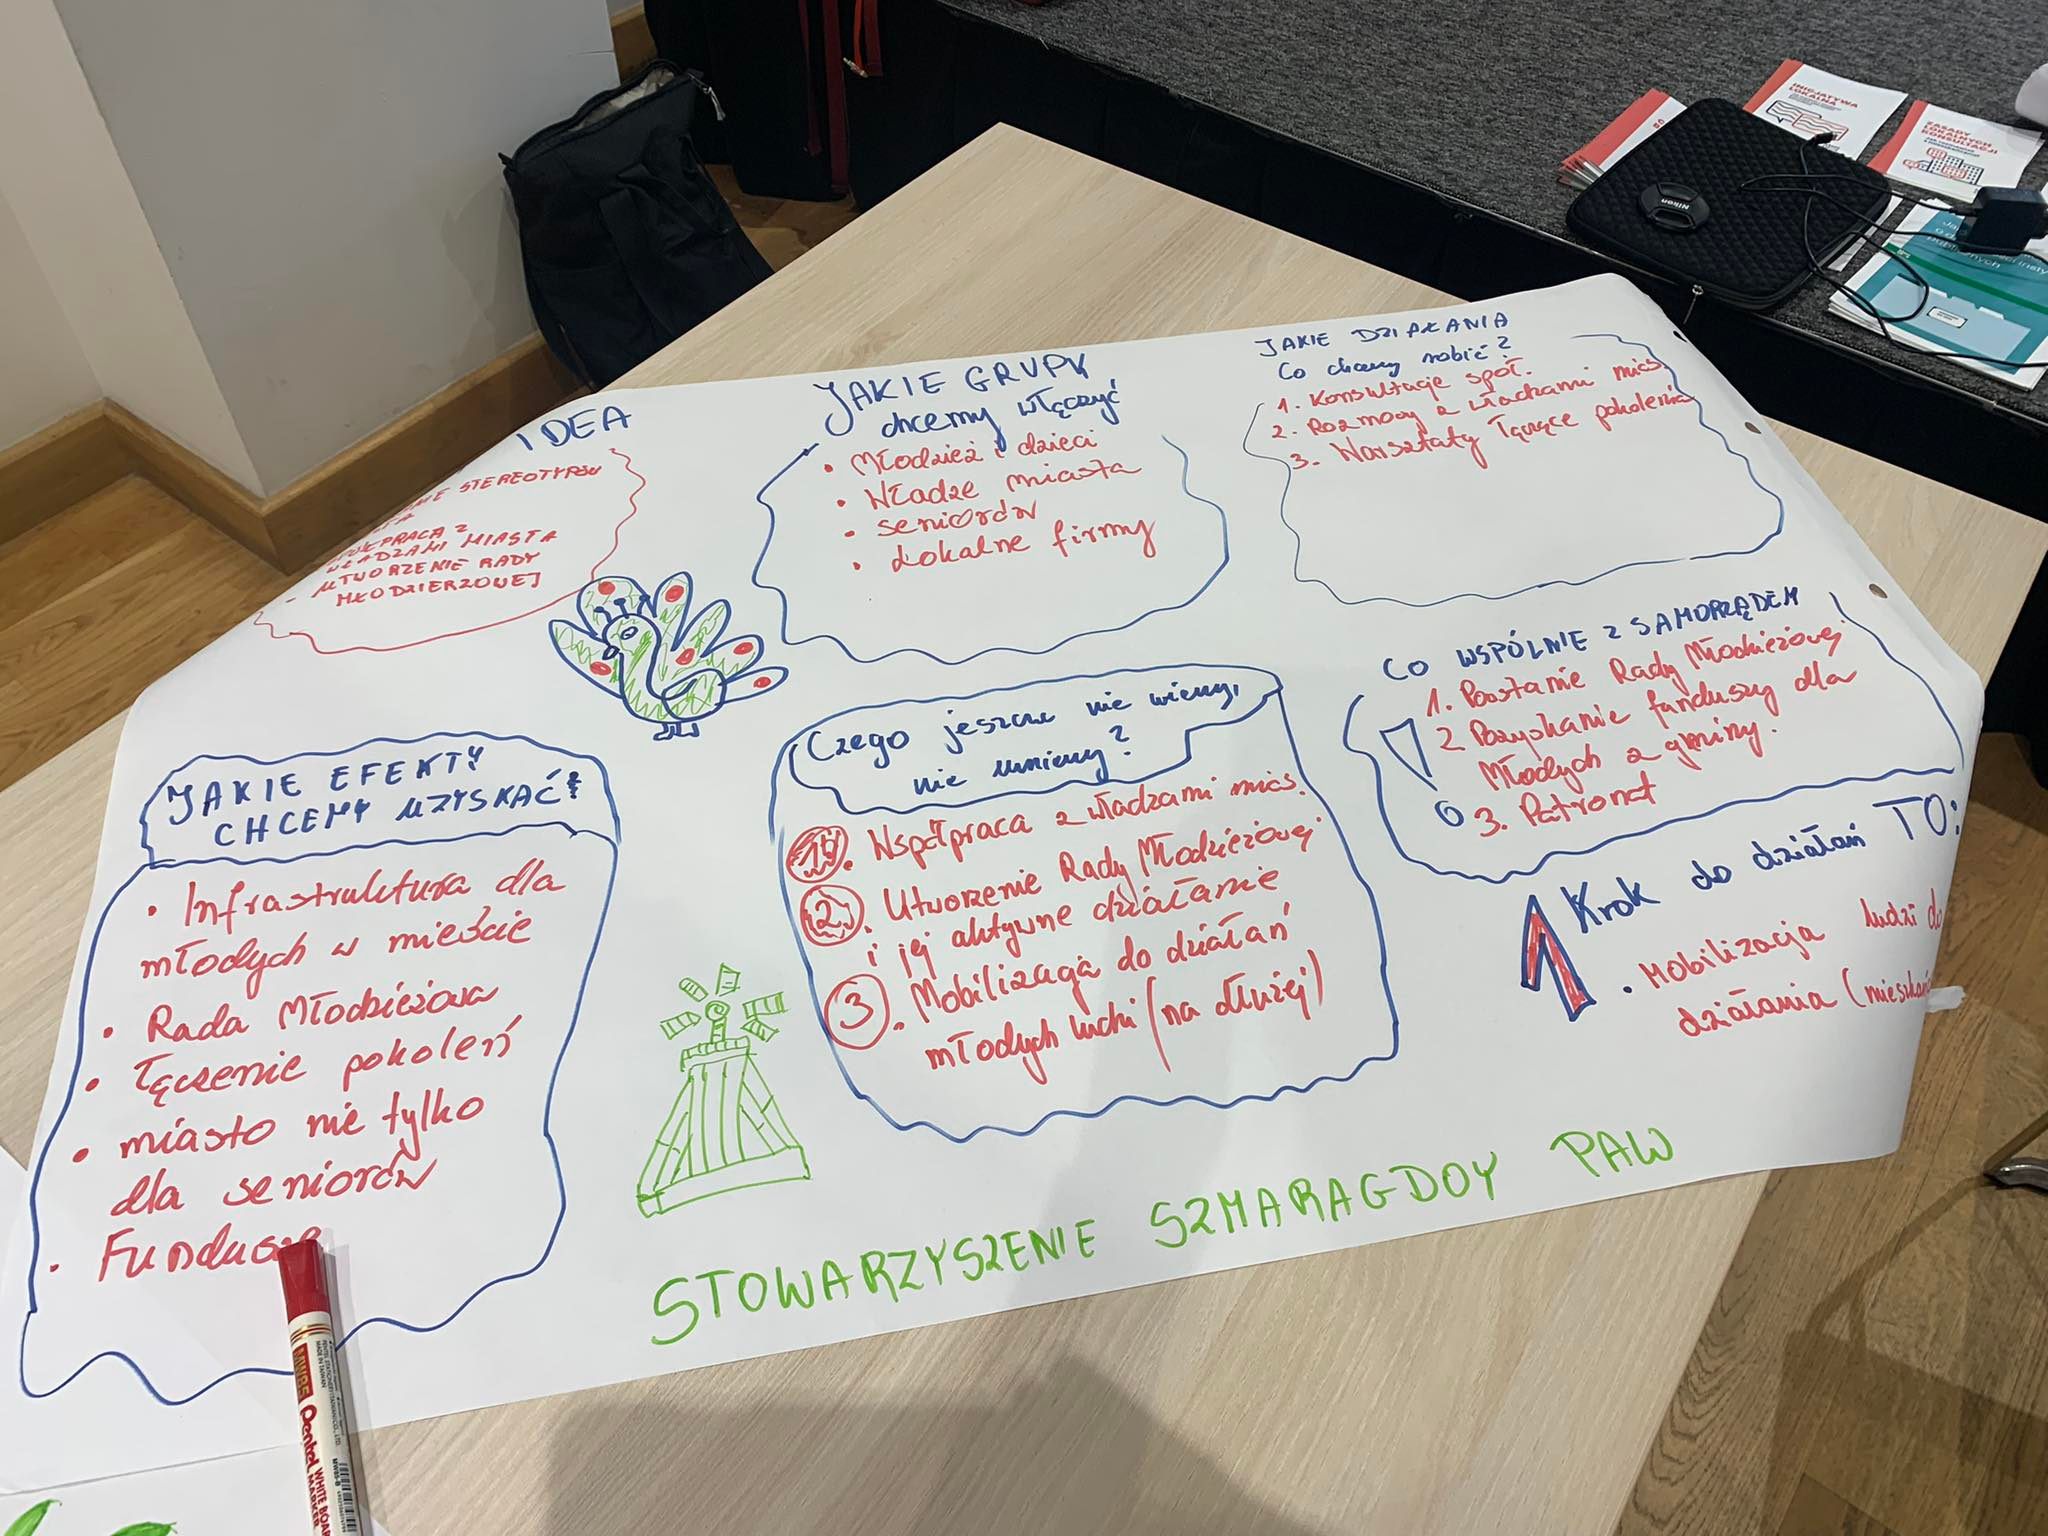 IDEA
STEREOTYPÓW
WŁADZAMI MIASTA
UTWORZENIE RADY
MŁODZIERZOWEJ
JAKIE GRUPY
chcemy włączyć
• Młodzież i dzieci
• Władze miasta
• seniorów
• Lokalne firmy
JAKIE DZIAŁANIA
Co chcemy robić?
1. Konsultacje społ.
2. Rozmowy z władzami mias.
3. Warsztaty łączące pokolenia
CO WSPÓLNIE Z SAMORZĄDEM
1. Powstanie Rady Młodzieżowej
2. Pozyskanie funduszy dla
Młodych z gminy.
3. Patronat
JAKIE EFEKTY
CHCEMY UZYSKAĆ?
• Infrastruktura dla
młodych w mieście
• Rada Młodzieżowa
• Łączenie pokoleń
• miasto nie tylko
dla seniorów
• Fundusze
Czego jeszcze nie wiemy,
nie umiemy?
1. Współpraca z władzami mias.
2. Utworzenie Rady Młodzieżowej
i jej aktywne działanie
3. Mobilizacja do działań
młodych ludzi (na dłużej)
1 Krok do działań TO:
• Mobilizacja ludzi do
działania
STOWARZYSZENIE SZMARAGDOY PAW
INICJATYWA
LOKALNA
ZASADY
LOKALNYCH
KONSULTACJI
Nikon
MW85 Pentel WHITE BOARD
MARKER